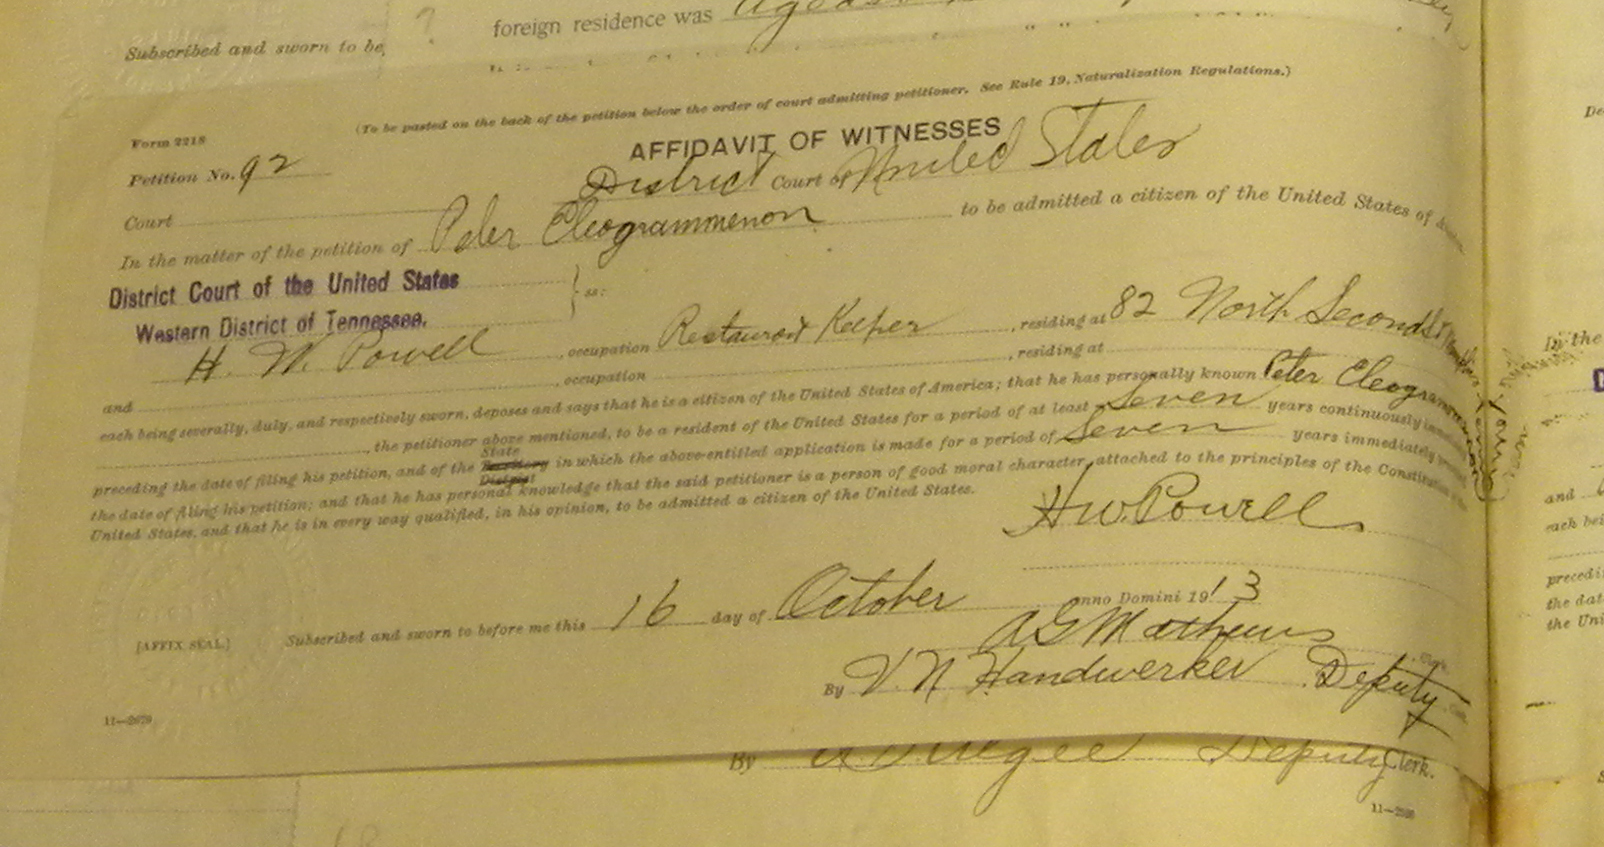 foreign residence was
Subscribed and sworn to be
(To be pasted on the back of the petition below the order of court admitting petitioner. See Rule 19, Naturalization Regulations.)
Form 2218
AFFIDAVIT OF WITNESSES
Petition No. 92
District Court of United States
Court
In the matter of the petition of Peter Cleogrammenon to be admitted a citizen of the United States of
District Court of the United States
Western District of Tennessee.
ss:
H. W. Powell, occupation Restaurant Keeper, residing at 82 North Second St
and , occupation , residing at
each being severally, duly, and respectively sworn, deposes and says that he is a citizen of the United States of America; that he has personally known Peter Cleogrammenon
, the petitioner above mentioned, to be a resident of the United States for a period of at least Seven years continuously
preceding the date of filing his petition, and of the State Territory District in which the above-entitled application is made for a period of Seven years immediately
the date of filing his petition; and that he has personal knowledge that the said petitioner is a person of good moral character, attached to the principles of the Constitution
United States, and that he is in every way qualified, in his opinion, to be admitted a citizen of the United States.
H W. Powell
[AFFIX SEAL.] Subscribed and sworn to before me this 16 day of October anno Domini 1913
A G Mathews
By V N Handwerker Deputy
11—2079
By Deputy Clerk.
and
each bei
precedi
the dat
the Uni